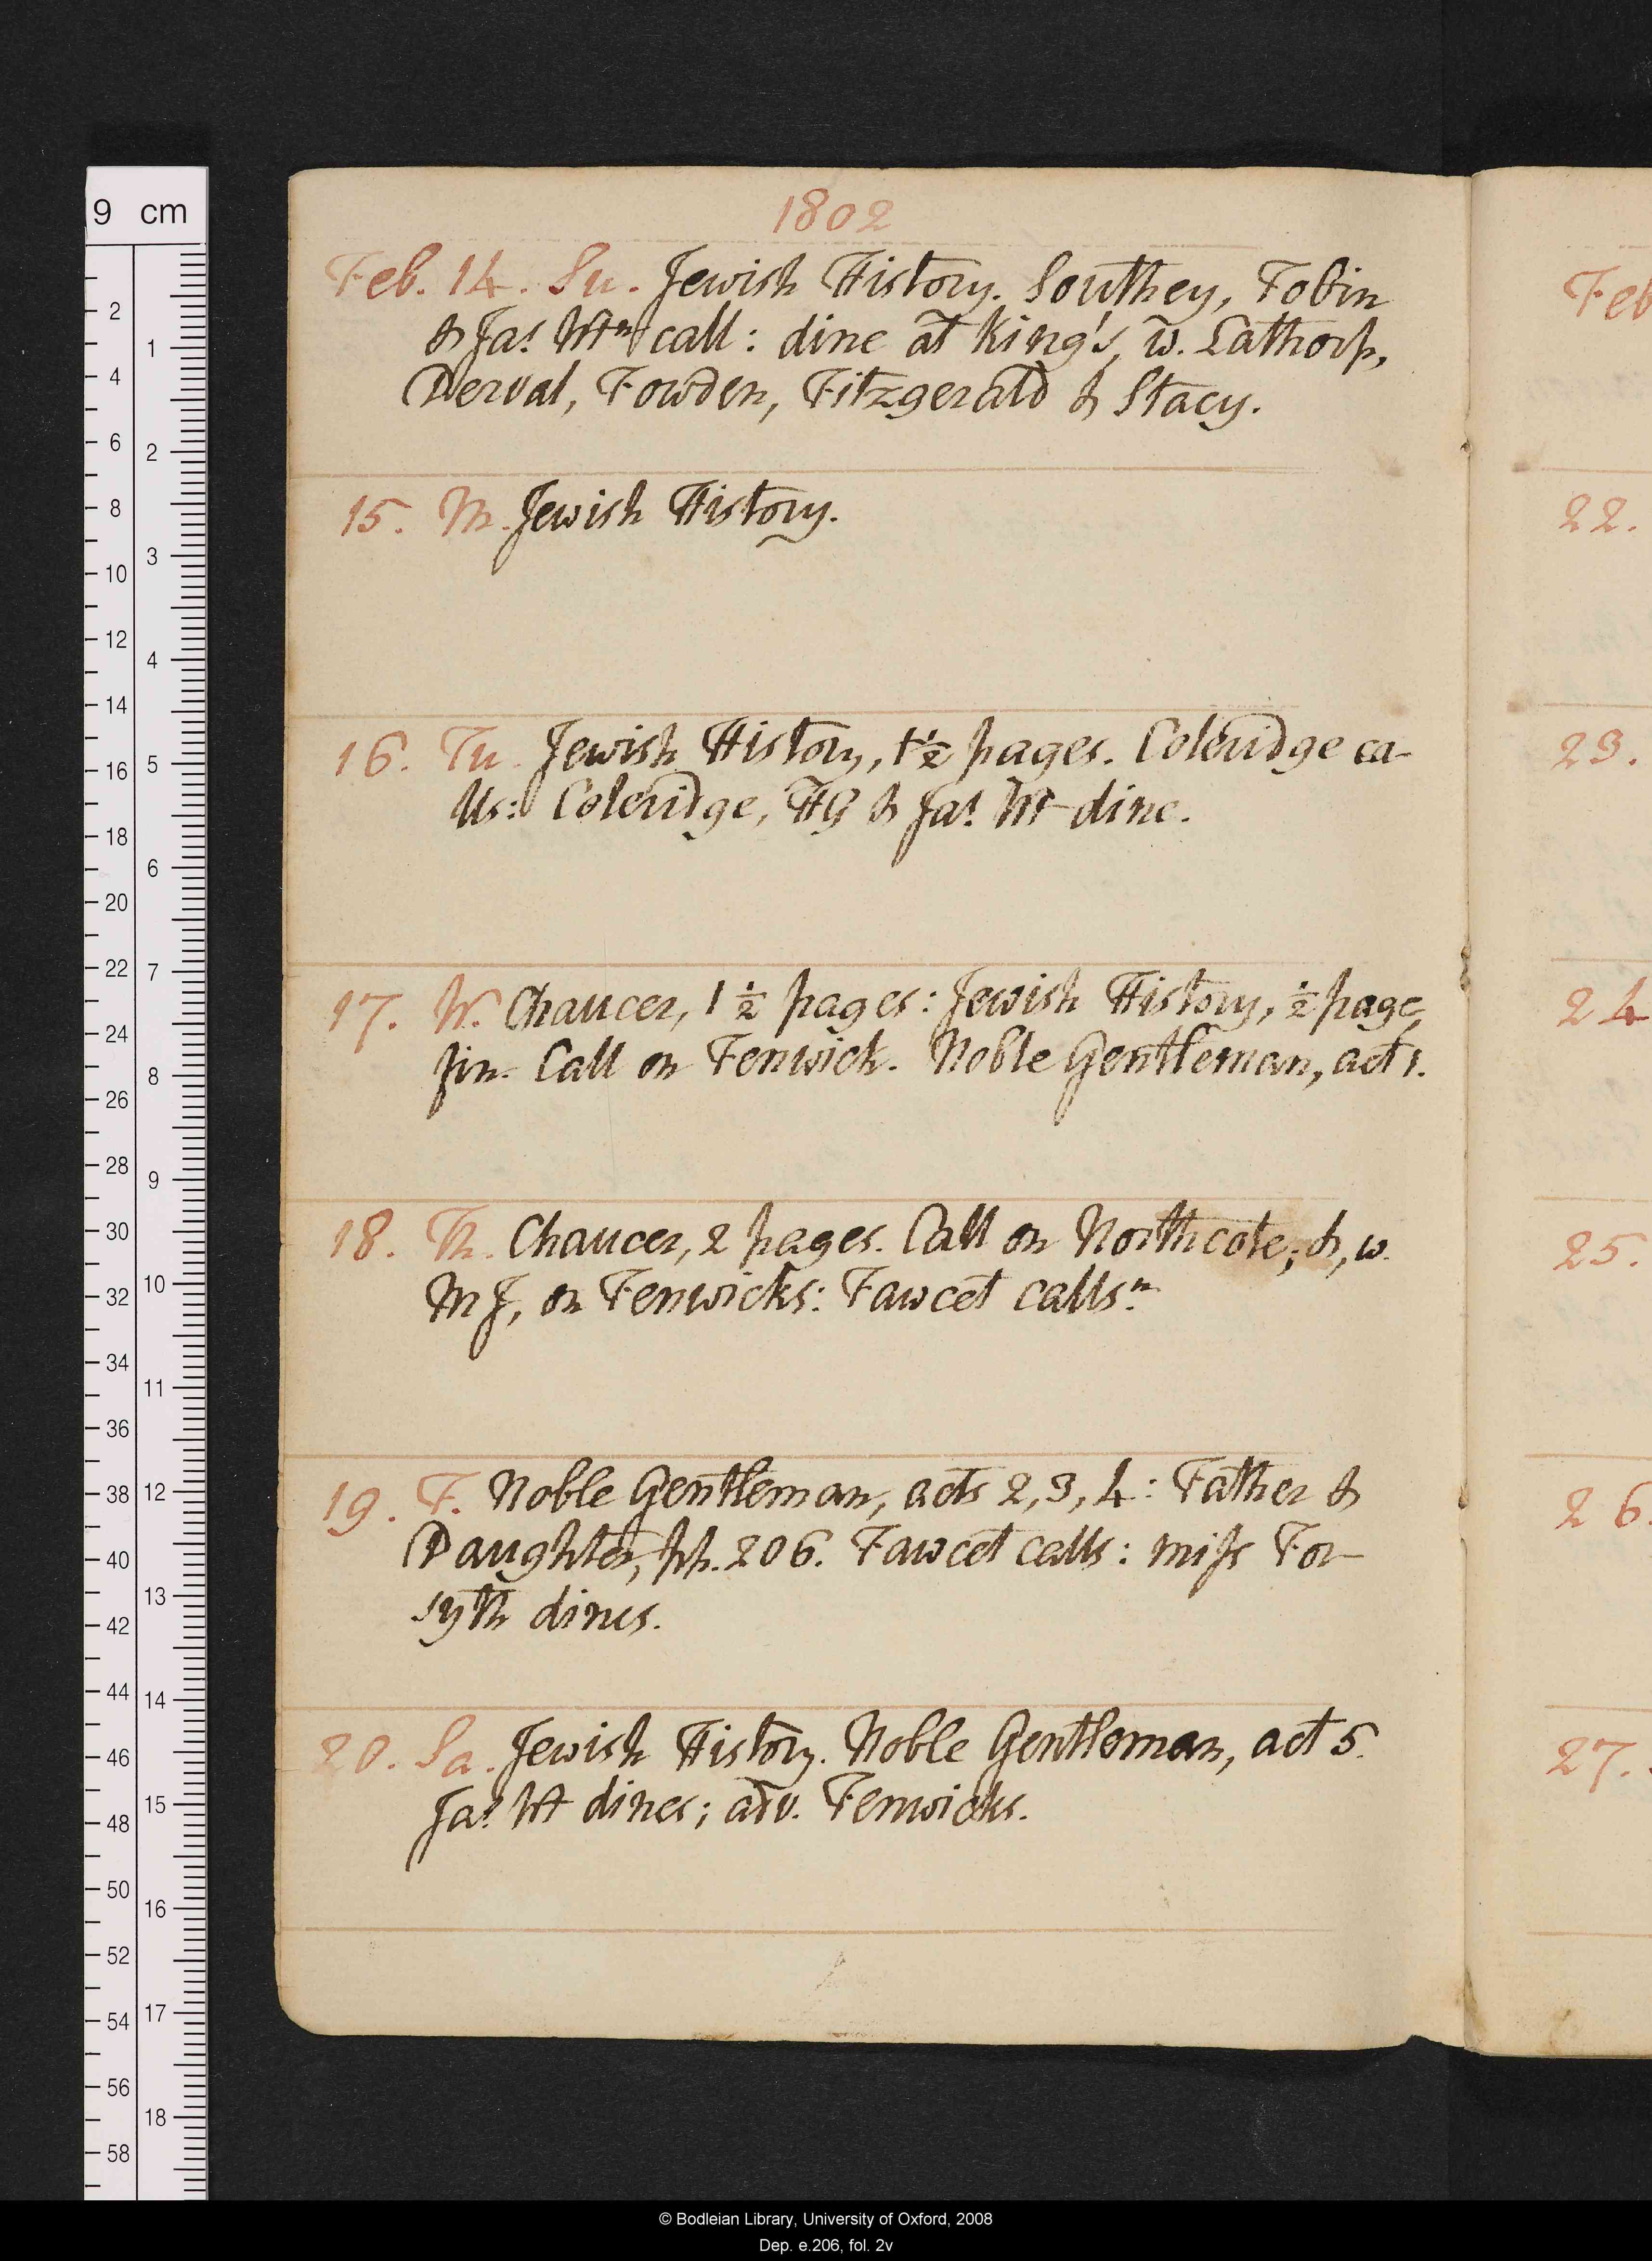 1802
Feb. 14. Su. Jewish History. Southey, Tobin
& Jas Mtn call: dine at King's, w. Lathorp,
Derval, Fowden, Fitzgerald & Stacy.
15. M. Jewish History.
16. Tu. Jewish History, 1½ pages. Coleridge ca-
lls: Coleridge, HG & Jas Mt dine.
17. W. Chaucer, 1½ pages: Jewish History, ½ page,
fin. Call on Fenwick. Noble Gentleman, act 1.
18. Th. Chaucer, 2 pages. Call on Northcote; &, w.
MJ, on Fenwicks: Fawcet calls n.
19. F. Noble Gentleman, acts 2, 3, 4: Father &
Daughter, pp. 206. Fawcet calls: miss For-
syth dines.
20. Sa. Jewish History. Noble Gentleman, act 5.
Jas Mt dines; adv. Fenwicks.
Feb
22.
23.
24
25.
26.
27.
9 cm
2
4
6
8
10
12
14
16
18
20
22
24
26
28
30
32
34
36
38
40
42
44
46
48
50
52
54
56
58
1
2
3
4
5
6
7
8
9
10
11
12
13
14
15
16
17
18
© Bodleian Library, University of Oxford, 2008
Dep. e.206, fol. 2v